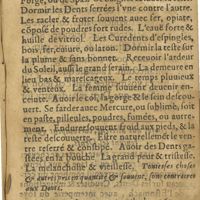 Dormir les Dents serrées l'vne contre l'autre.
Les racler & froter souuent auec fer, opiate,
cõposé de poudres fort rudes. L'eauë forte &
huille de vitriol. Les Curedents d'espingles,
bois, fer, cuiure, ou laton. Dormir la teste sur
la plume & sans bonnet. Receuoir l'ardeur
du Soleil, aussi le grand serain. La demeure en
lieu bas & marescageux. Le temps pluuieux
& venteux. La femme souuent deuenir en-
ceinte. Auoir le col, la gorge & le sein descou-
uert. Se farder auec Mercure, ou sublimé, soit
en paste, pilleules, poudres, fumées, ou autre-
ment. Endurer souuent froid aux pieds, & la
teste descouuerte. Estre naturellemẽt le ven-
tre reserré & constipé. Auoir des Dents ga-
stées en la bouche. La grand peur & tristesse.
La melancholie & vieillesse. Toutes les choses
& autres prises en quantité & souuent, sont contraires
aux Dents.